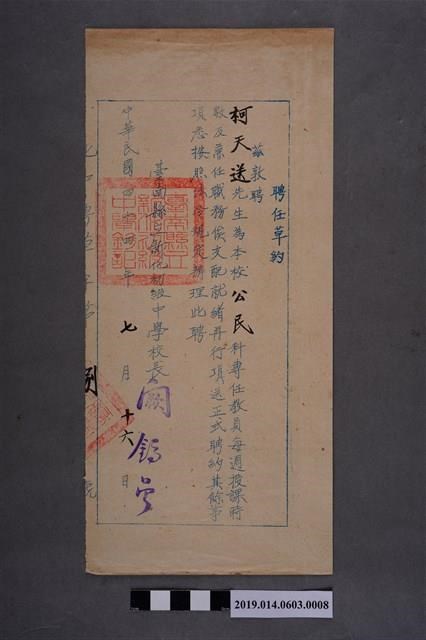 聘任草約
茲敦聘
柯天送先生為本校公民科專任教員每週授課時
數及兼任職務俟支配就緒再行項送正式聘約其餘事
項悉按照法令規定辦理此聘
臺南縣立新化初級中學校長
中華民國四十四年七月十六日
2019.014.0603.0008